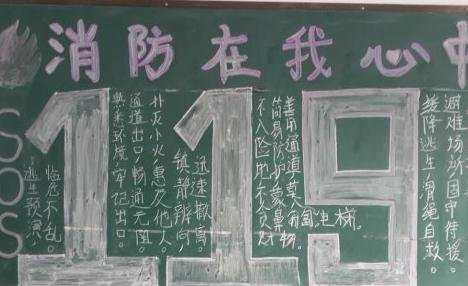 消防在我心中
SOS
119
逃生预演。
临危不乱。
熟悉环境,牢记出口。
通道出口,畅通无阻。
扑灭小火,惠及他人。
镇静辨向,
迅速撤离。
不入险地,不贪财物。
简易防护,蒙鼻
善用通道,莫入电梯。
缓降逃生,滑绳自救。
避难场所,固守待援。